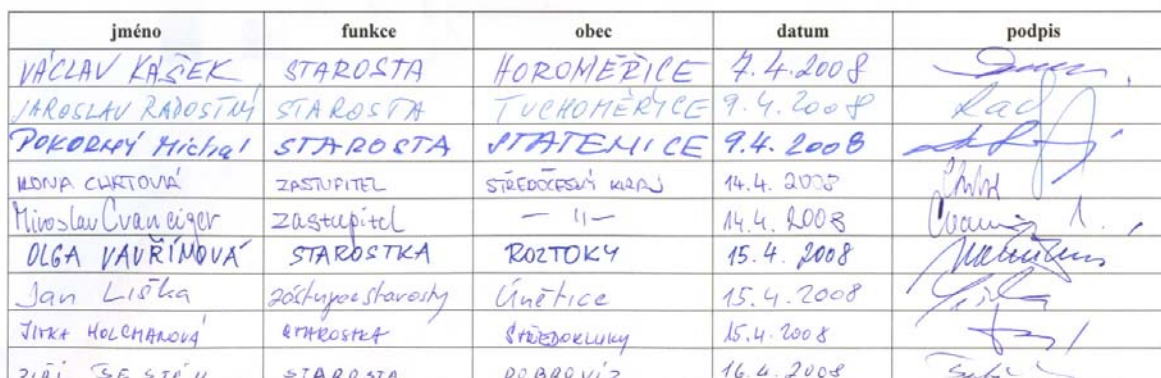 jméno funkce obec datum podpis
VÁCLAV KÁŠEK STAROSTA HOROMĚŘICE 7.4.2008
JAROSLAV RADOSTNÝ STAROSTA TUCHOMĚŘICE 9.4.2008
POKORNÝ Michal STAROSTA STATENICE 9.4.2008
ZASTUPITEL STŘEDOČESKÝ KRAJ 14.4.2008
Miroslav Cvanciger zastupitel — 11 — 14.4.2008
OLGA VAVŘÍNOVÁ STAROSTKA ROZTOKY 15.4.2008
Jan Liška zástupce starosty Únětice 15.4.2008
JITKA HOLCMANOVÁ STAROSTKA STŘEDOKLUKY 15.4.2008
JIŘÍ STAROSTA DOBROVÍZ 16.4.2008